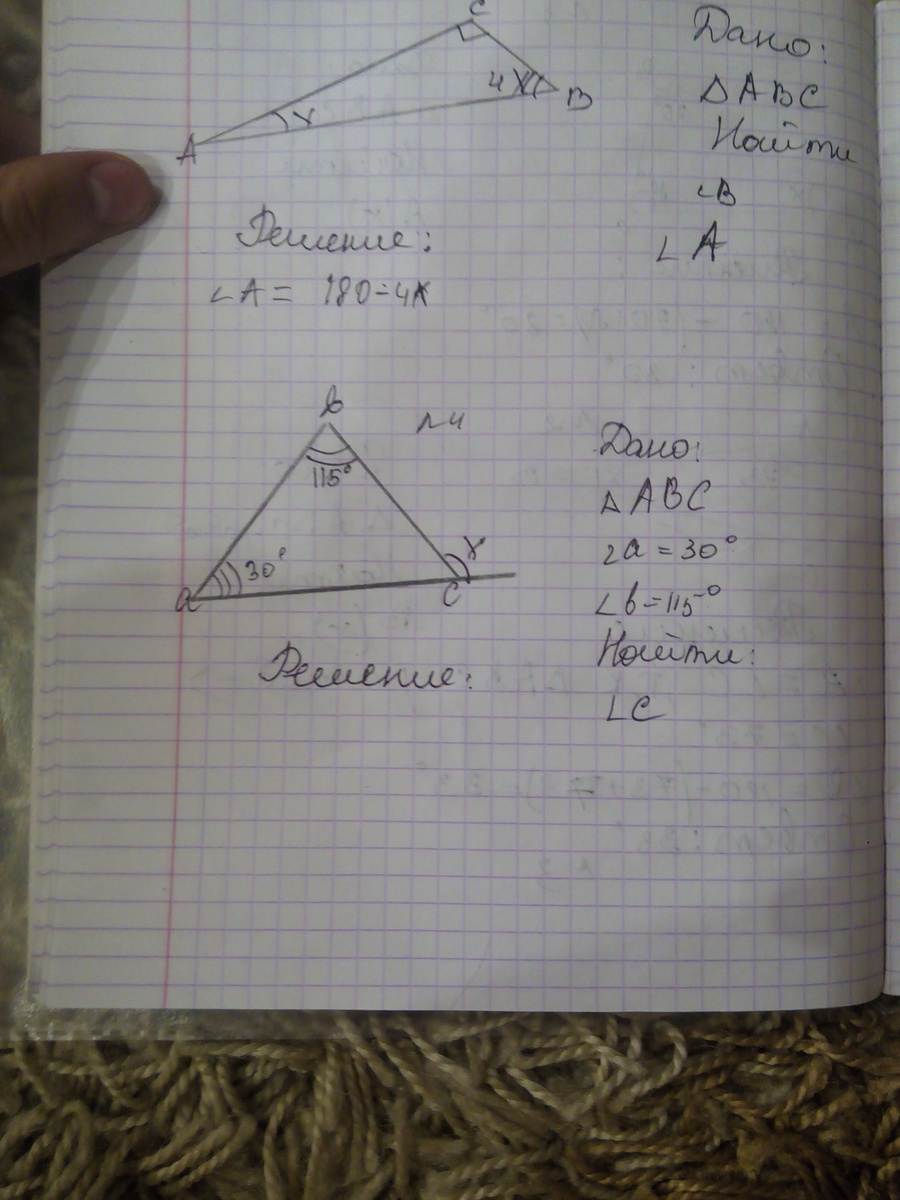 C
4x
B
x
A
Дано:
△ABC
Найти
∠B
∠A
Решение:
∠A = 180-4x
b
№4
115°
30°
x
a
C
Дано:
△ABC
∠a = 30°
∠b = 115°
Найти:
∠C
Решение: